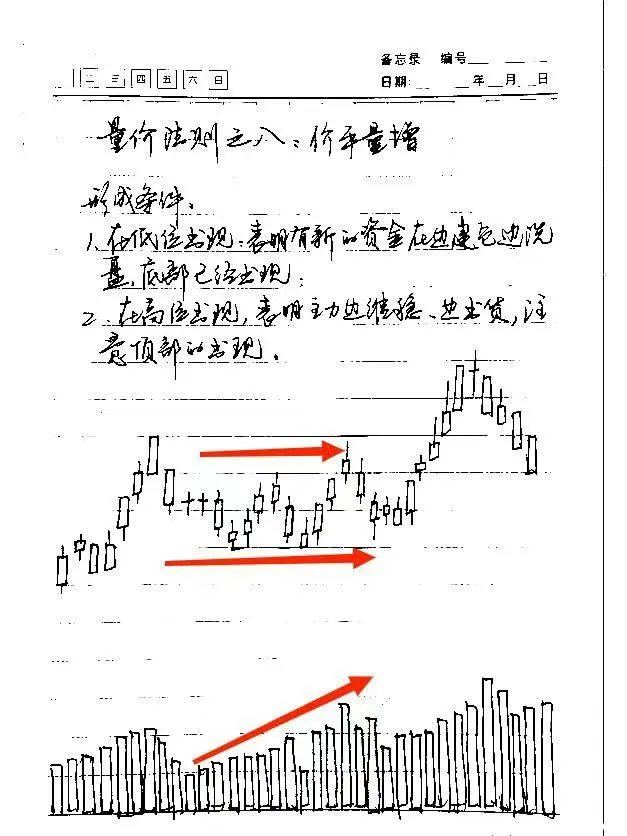 备忘录 编号
二 三 四 五 六 日
日期: 年 月 日
量价法则之八：价平量增
形成条件：
1、在低位出现：表明有新的资金在边建仓边洗
盘，底部已经出现；
2、在高位出现，表明主力边维稳、边出货，注
意顶部的出现。